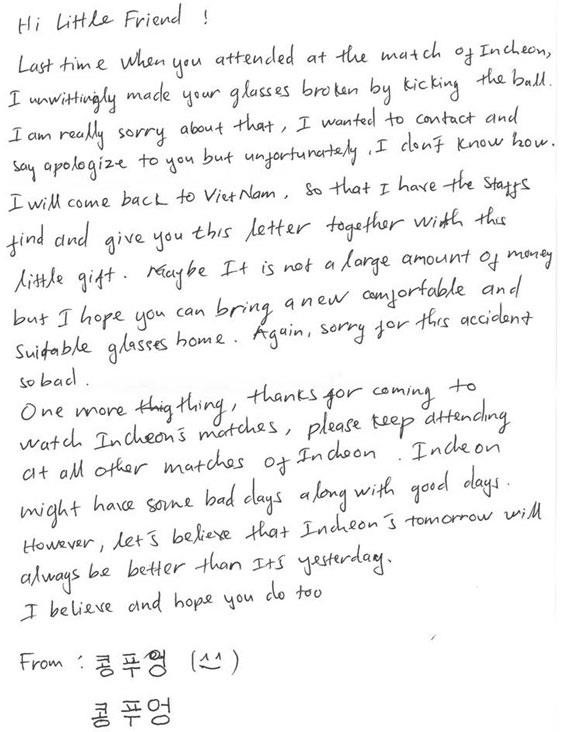 Hi Little Friend !
Last time when you attended at the match of Incheon,
I unwittingly made your glasses broken by kicking the ball.
I am really sorry about that, I wanted to contact and
say apologize to you but unfortunately, I don't know how.
I will come back to Viet Nam, so that I have the staffs
find and give you this letter together with this
little gift. Maybe It is not a large amount of money
but I hope you can bring a new comfortable and
suitable glasses home. Again, sorry for this accident
so bad.
One more thig thing, thanks for coming to
watch Incheon's matches, please keep attending
at all other matches of Incheon. Incheon
might have some bad days along with good days.
However, let's believe that Incheon's tomorrow will
always be better than It's yesterday.
I believe and hope you do too
From : 콩푸엉 (^^)
콩푸엉